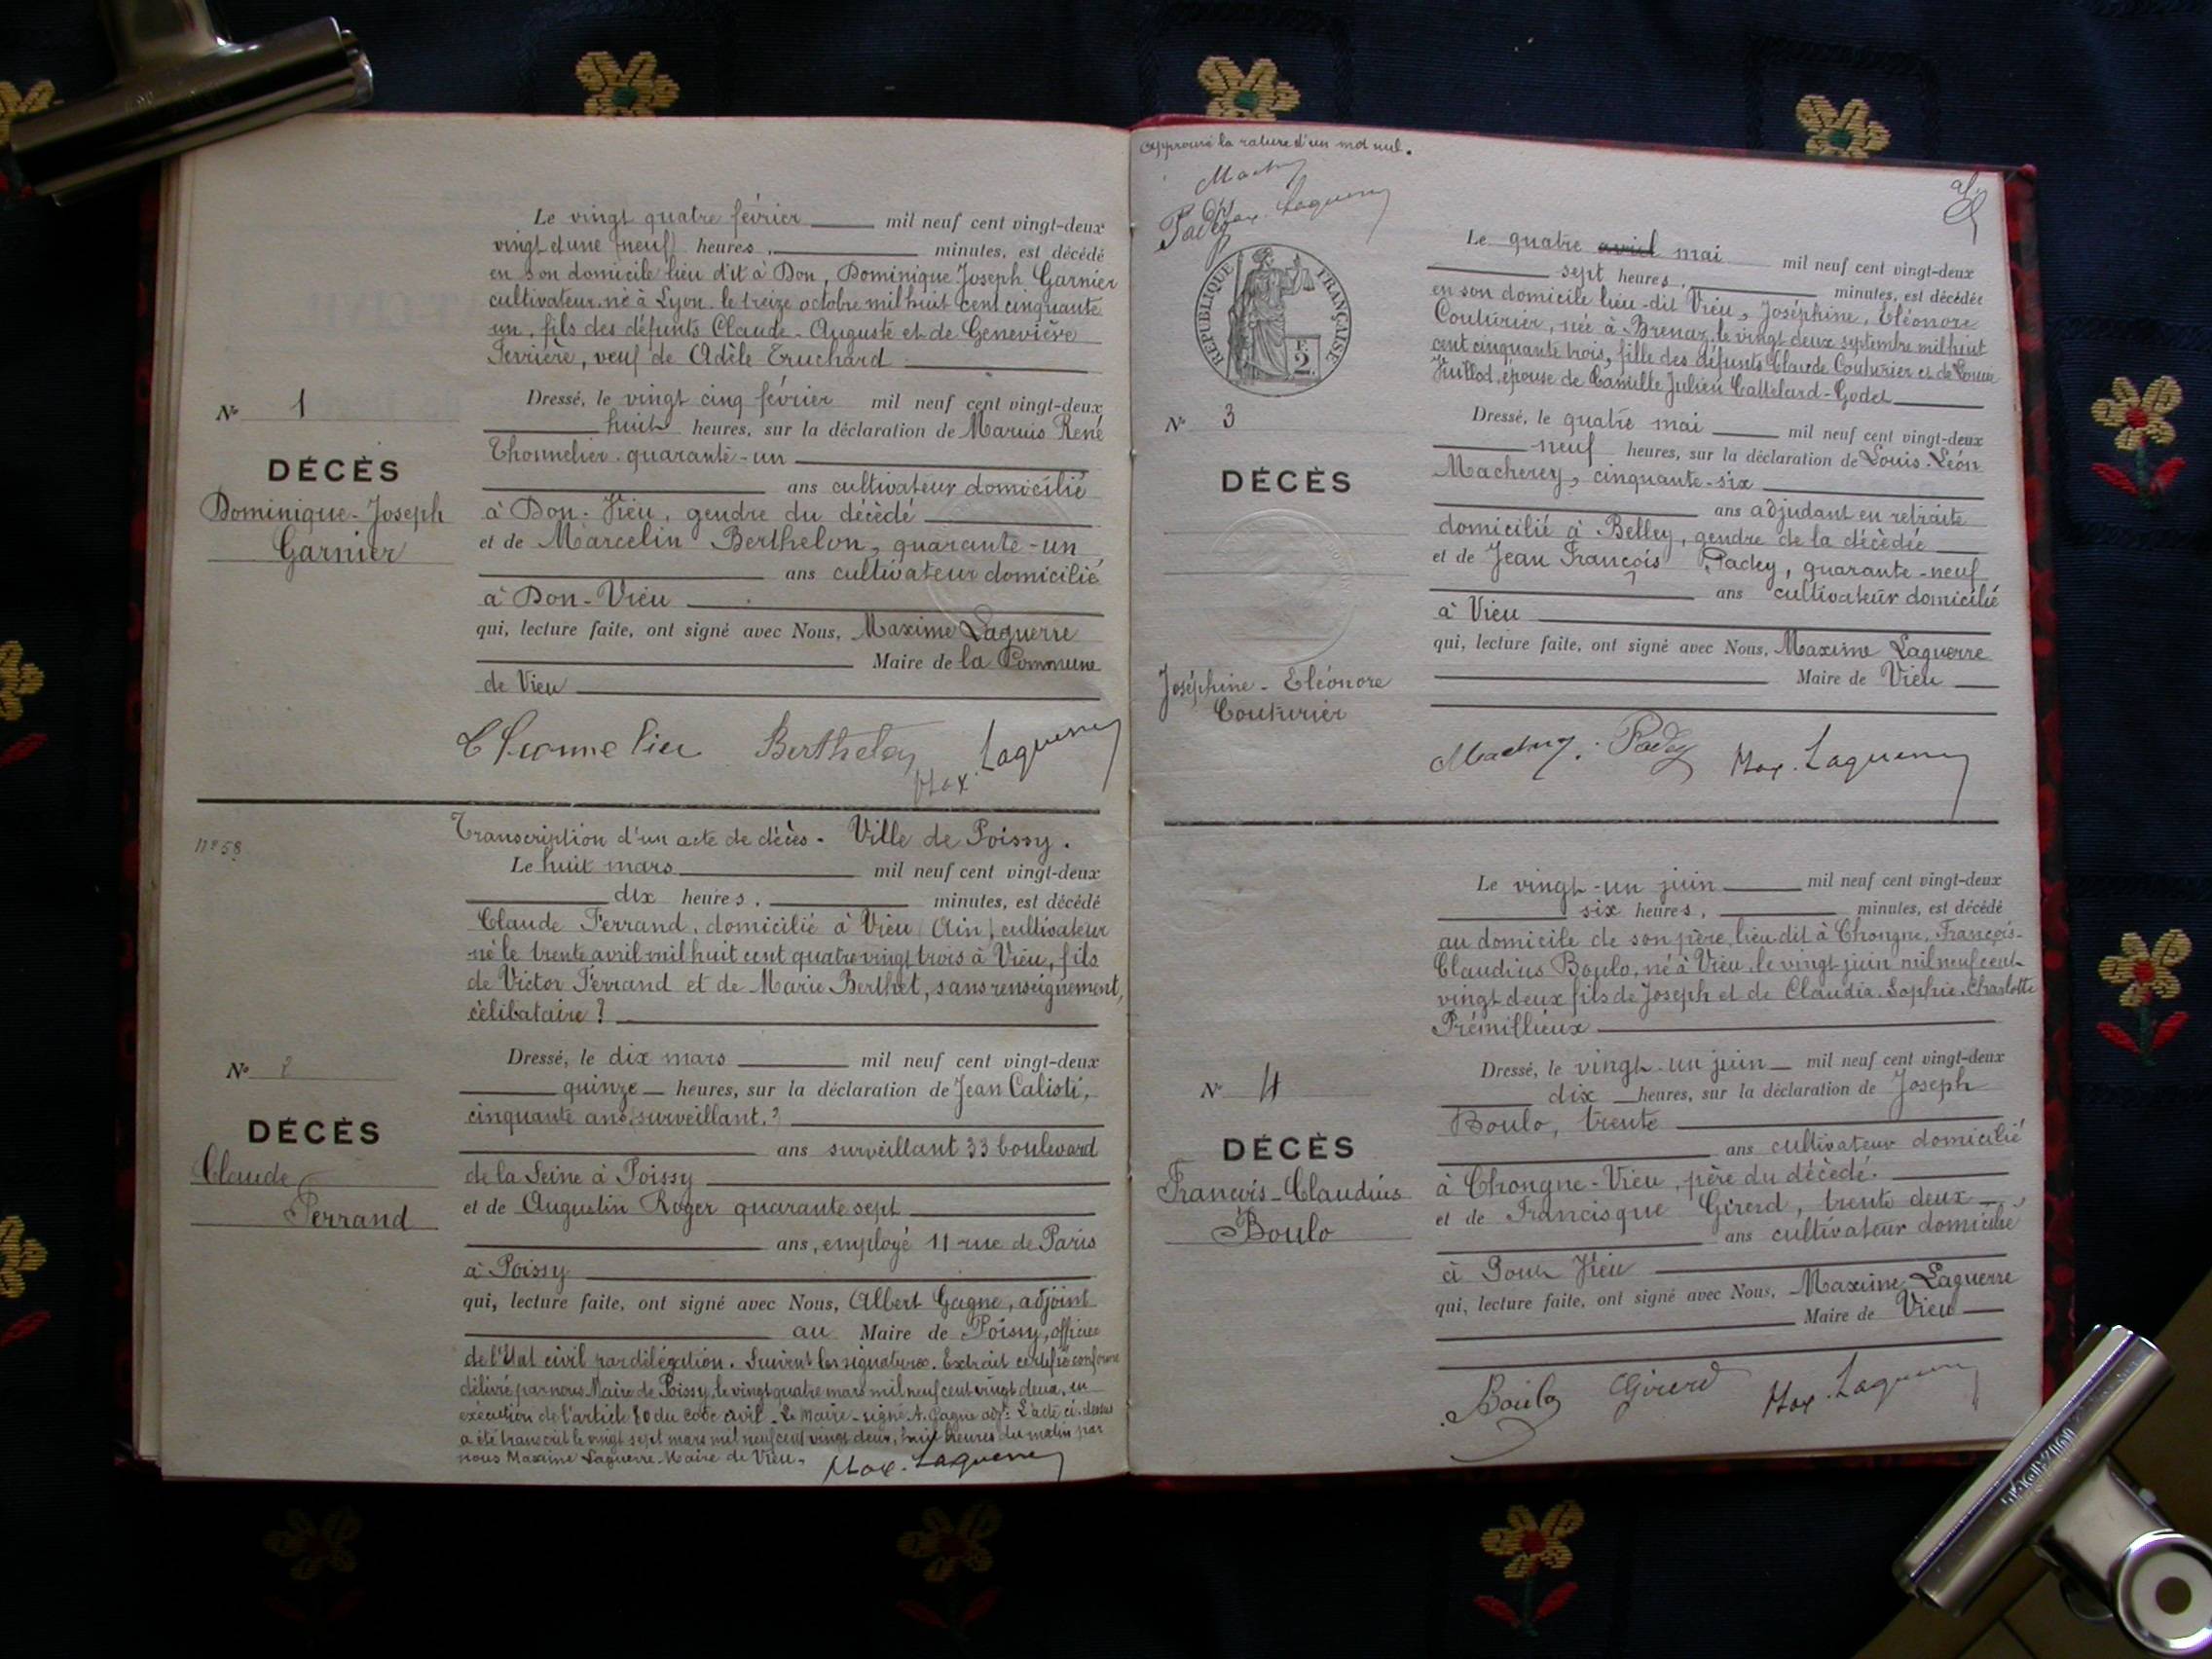 Le vingt quatre février mil neuf cent vingt-deux
vingt et une (neuf) heures, minutes, est décédé
en son domicile lieu dit à Don, Dominique Joseph Garnier
cultivateur, né à Lyon, le treize octobre mil huit cent cinquante
un, fils des défunts Claude-Auguste et de Geneviève
veuf de Adèle Truchard
N° 1
DÉCÈS
Dominique-Joseph
Garnier
Dressé, le vingt cinq février mil neuf cent vingt-deux
huit heures, sur la déclaration de Marius René
Thonnelier, quarante-un
ans cultivateur domicilié
à Don-Vieu, gendre du décédé
et de Marcelin Berthelon, quarante-un
ans cultivateur domicilié
à Don-Vieu
qui, lecture faite, ont signé avec Nous, Maxime Laguerre
Maire de la Commune
de Vieu
Thonnelier Berthelon Max. Laguerre
n° 58
Transcription d'un acte de décès - Ville de Poissy.
Le huit mars mil neuf cent vingt-deux
dix heures, minutes, est décédé
Claude Perrand, domicilié à Vieu (Ain), cultivateur
né le trente avril mil huit cent quatre vingt trois à Vieu, fils
de Victor Perrand et de Marie Berthet, sans renseignement,
célibataire ?
N° 2
DÉCÈS
Claude
Perrand
Dressé, le dix mars mil neuf cent vingt-deux
quinze heures, sur la déclaration de Jean Calisti,
cinquante ans, surveillant.
ans surveillant 33 boulevard
de la Seine à Poissy
et de Augustin Roger quarante sept
ans, employé 11 rue de Paris
à Poissy
qui, lecture faite, ont signé avec Nous, Albert Gagne, adjoint
au Maire de Poissy, officier
de l'Etat civil par délégation. Suivent les signatures. Extrait certifié conforme
délivré par nous Maire de Poissy, le vingt quatre mars mil neuf cent vingt deux, en
exécution de l'article 80 du code civil - Le Maire - signé A. Gagne adj. L'acte ci-dessus
a été transcrit le vingt sept mars mil neuf cent vingt deux, huit heures du matin par
nous Maxime Laguerre Maire de Vieu. Max. Laguerre
Approuvé la rature d'un mot nul.
Macherey
Padey Max. Laguerre
RÉPUBLIQUE FRANÇAISE
2 F
Le quatre avril mai mil neuf cent vingt-deux
sept heures, minutes, est décédée
en son domicile lieu-dit Vieu, Joséphine, Eléonore
Couturier, née à Brenaz, le vingt deux septembre mil huit
cent cinquante trois, fille des défunts Claude Couturier et de Louise
épouse de Camille Julien Cattelard-Godet
N° 3
DÉCÈS
Joséphine-Eléonore
Couturier
Dressé, le quatre mai mil neuf cent vingt-deux
neuf heures, sur la déclaration de Louis-Léon
Macherey, cinquante-six
ans adjudant en retraite
domicilié à Belley, gendre de la décédée
et de Jean François Padey, quarante-neuf
ans cultivateur domicilié
à Vieu
qui, lecture faite, ont signé avec Nous, Maxime Laguerre
Maire de Vieu
Macherey. Padey Max. Laguerre
Le vingt-un juin mil neuf cent vingt-deux
six heures, minutes, est décédé
au domicile de son père, lieu dit à Chongne, François-
Claudius Boulo, né à Vieu, le vingt juin mil neuf cent
vingt deux fils de Joseph et de Claudia, Sophie, Charlotte
Prémillieux
N° 4
DÉCÈS
François-Claudius
Boulo
Dressé, le vingt-un juin mil neuf cent vingt-deux
dix heures, sur la déclaration de Joseph
Boulo, trente
ans cultivateur domicilié
à Chongne-Vieu, père du décédé.
et de Francisque Girerd, trente deux
ans cultivateur domicilié
Vieu
qui, lecture faite, ont signé avec Nous, Maxime Laguerre
Maire de Vieu
Boulo Girerd Max. Laguerre